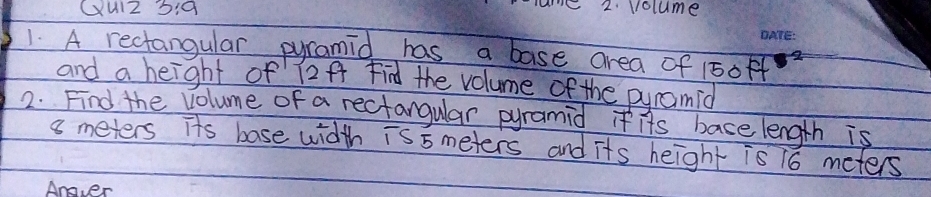 Quiz 3:9
2. Volume
DATE:
1. A rectangular pyramid has a base area of 150ft ²
and a height of 12 ft Find the volume of the pyramid
2. Find the volume of a rectangular pyramid if its base length is
8 meters its base width is 5 meters and its height is 16 meters
Answer